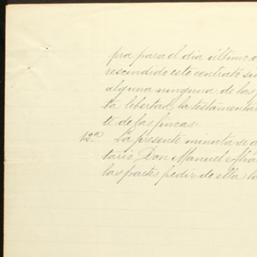 pra para el dia último d
rescindido este contrato sin
alguna ninguna de las
ta libertad, la testamentar
te de las fincas.
12.ª La presente minuta se
tario Don Manuel
las partes pedir de ella